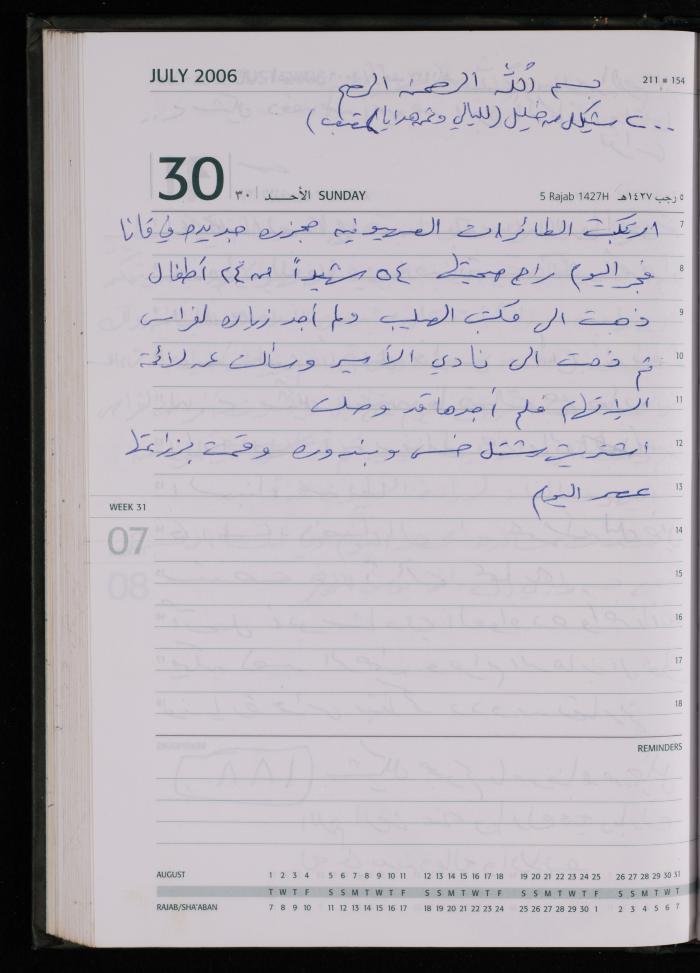 JULY 2006
بسم الله الرحمن الرحيم
211 ■ 154
٢٠٠ شيكل من خليل (لليالي وثمن هدايا)
30
٣٠ الأحــد SUNDAY
5 Rajab 1427H ٥ رجب ١٤٢٧هـ
7 ارتكبت الطائرات الصهيونيه مجزره جديده في قانا
8 فجر اليوم راح ضحيتها ٥٤ شهيداً منهم ٢٤ أطفال
9 ذهبت الى مكتب الصليب ولم أجد زياره لفراس
10 ثم ذهبت الى نادي الأسير وسألت عن لائحة
11 الإتهام فلم أجدها قد وصلت
12 اشتريت شتل خس وبندوره وقمت بزراعتها
13 عصر اليوم
WEEK 31
14
07
15
08
16
17
18
REMINDERS
AUGUST 1 2 3 4 5 6 7 8 9 10 11 12 13 14 15 16 17 18 19 20 21 22 23 24 25 26 27 28 29 30 31
T W T F S S M T W T F S S M T W T F S S M T W T F S S M T W T
RAJAB/SHA'ABAN 7 8 9 10 11 12 13 14 15 16 17 18 19 20 21 22 23 24 25 26 27 28 29 30 1 2 3 4 5 6 7